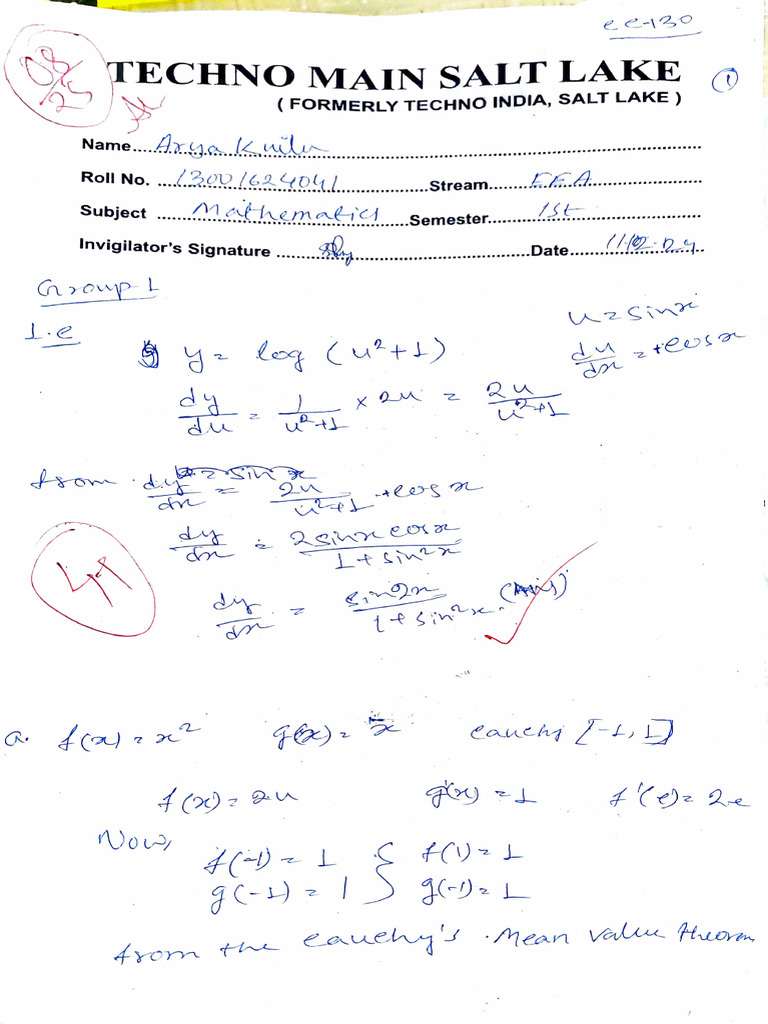 ee-130
08/25
TECHNO MAIN SALT LAKE
( FORMERLY TECHNO INDIA, SALT LAKE )
1
Name....Arya
Roll No. ...13001624041 Stream....EEA
Subject ....Mathematics Semester....1st
Invigilator's Signature .... Date....
Group-1
1.e
y = log (u²+1)
u = sinx
du/dx = +cosx
dy/du = 1/(u²+1) × 2u = 2u/(u²+1)
from dy/dx = 2u/(u²+1) · cosx
dy/dx = 2sinx cosx/(1+sin²x)
dy/dx = sin2x/(1+sin²x)
a. f(x) = x² g(x) = x cauchy [-1, 1]
f(x) = 2x g'(x) = 1 f'(c) = 2c
Now,
f(-1) = 1 } f(1) = 1
g(-1) = 1 } g(-1) = 1
from the cauchy's Mean value theorem